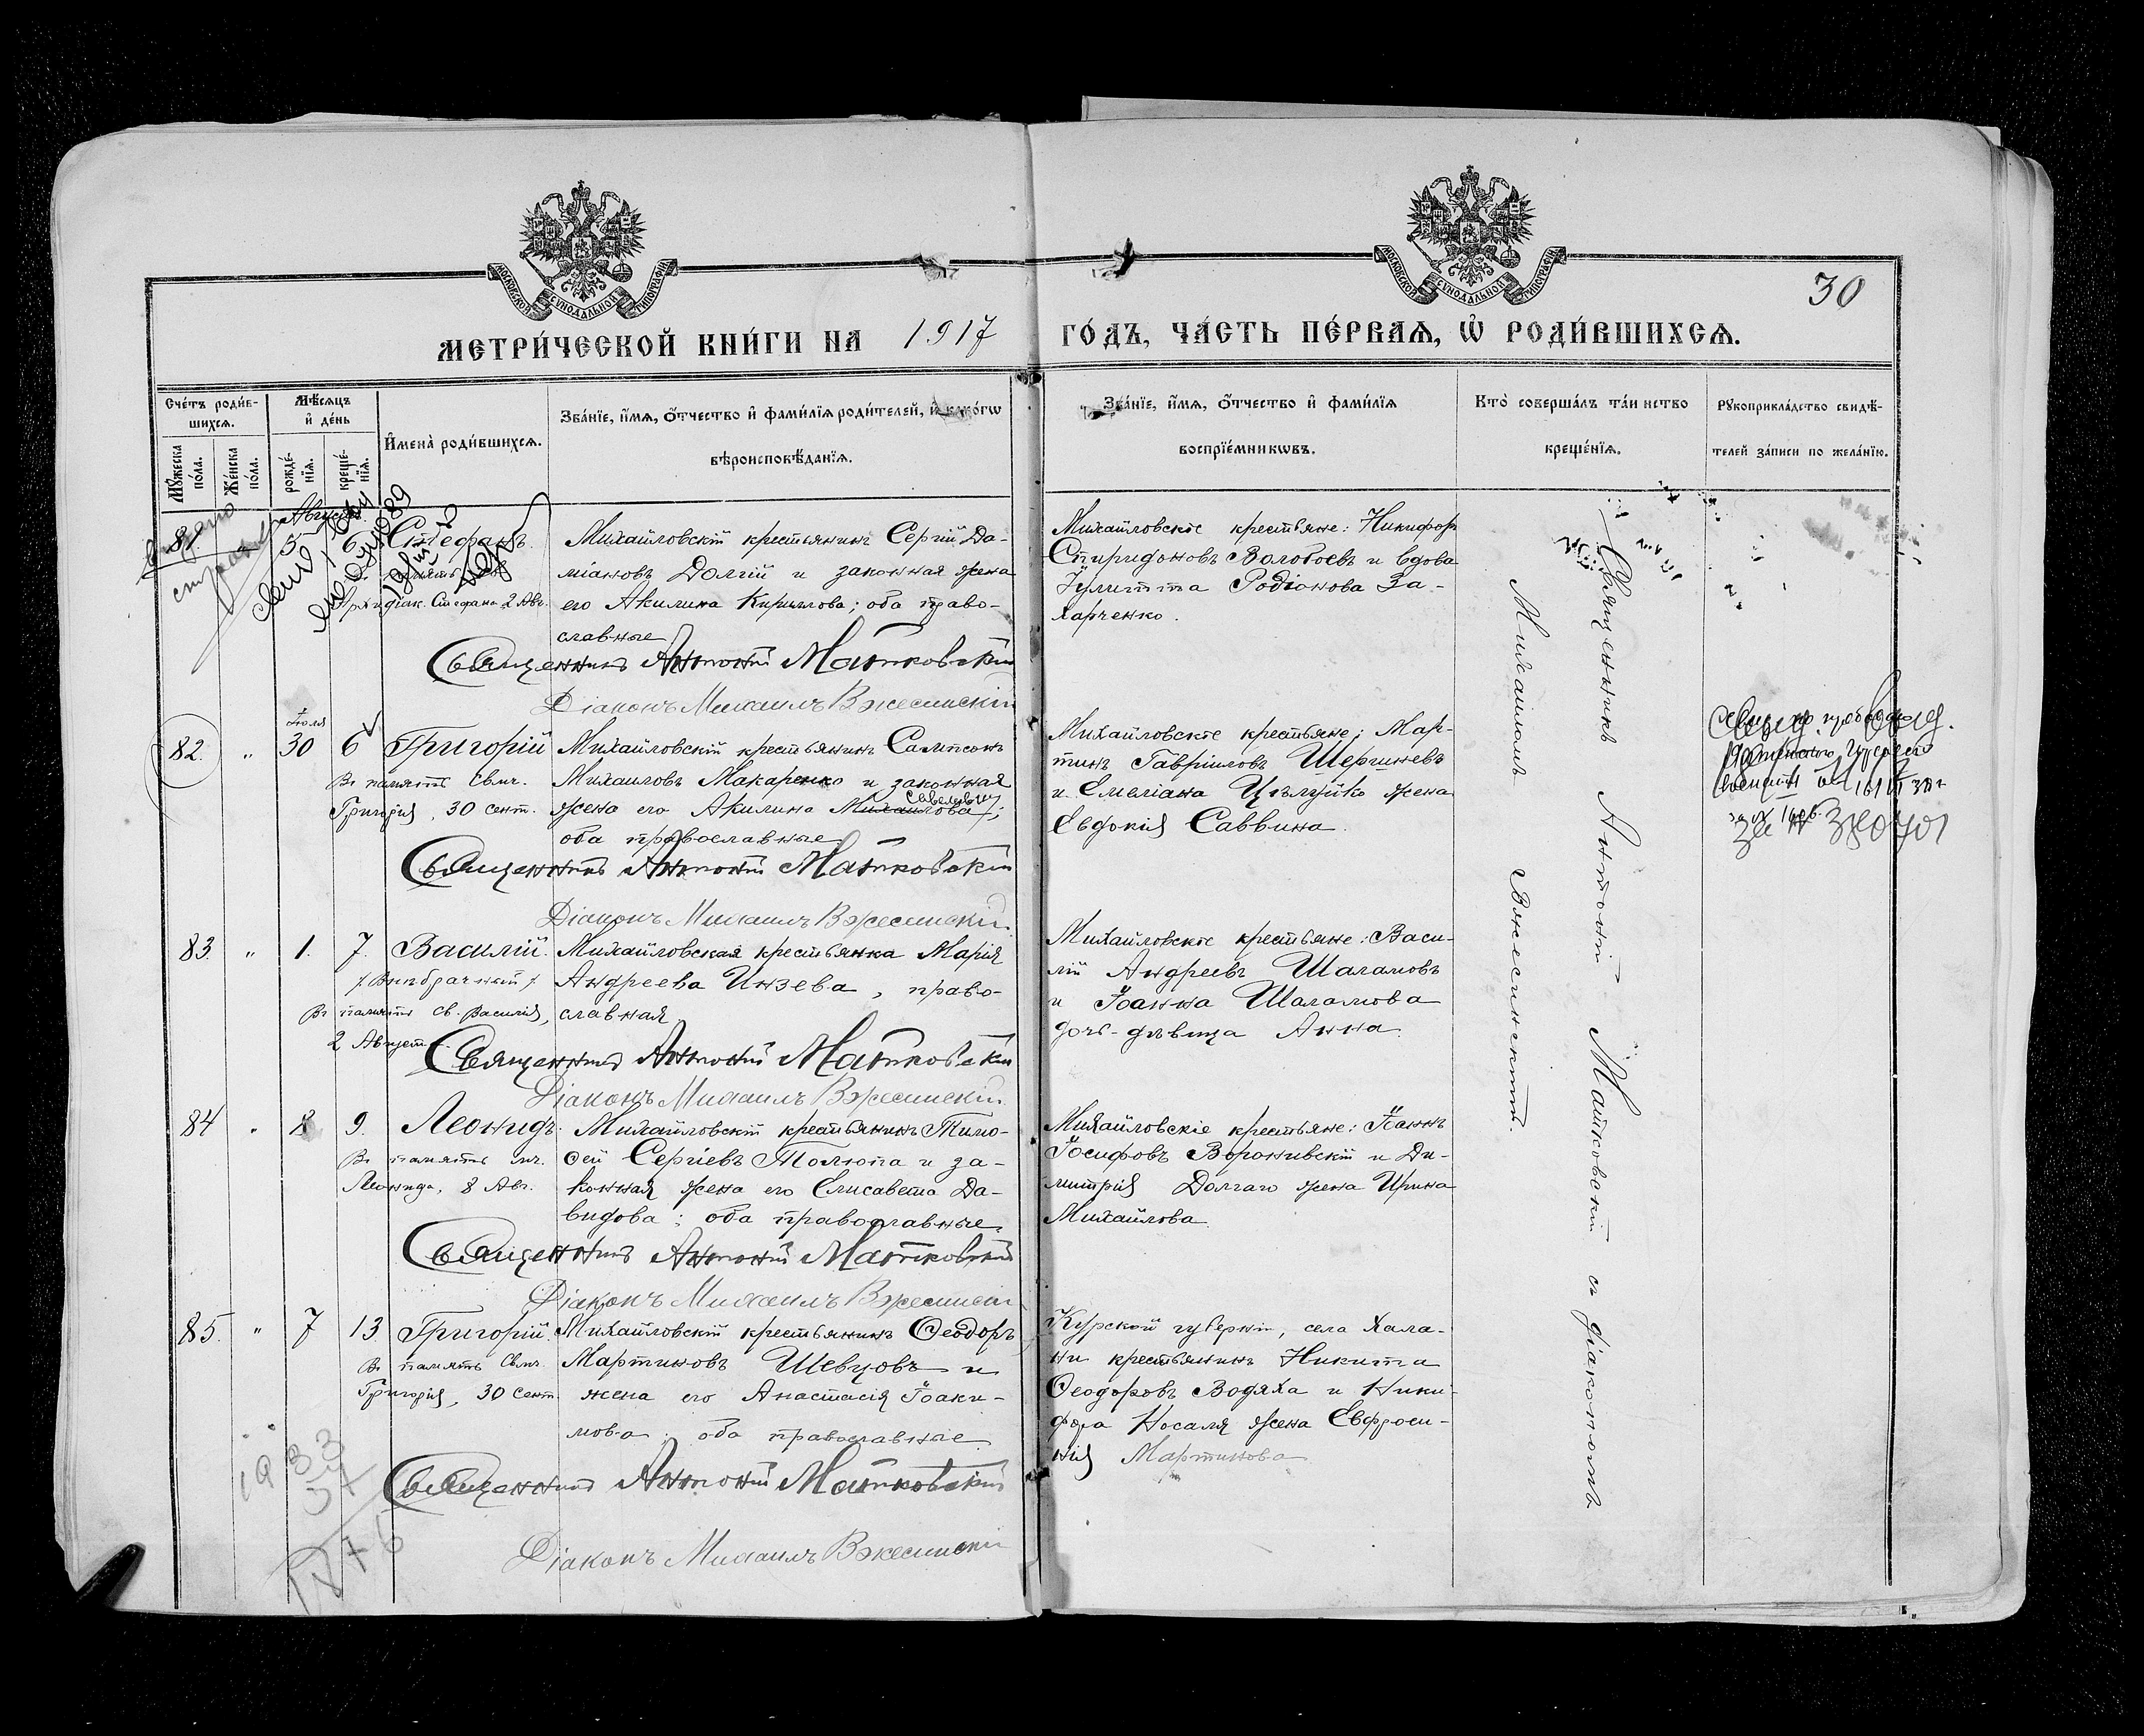 МОСКОВСКОЙ СУНОДАЛЬНОЙ ТИПОГРАФІИ
МОСКОВСКОЙ СУНОДАЛЬНОЙ ТИПОГРАФІИ
30
МЕТРИ́ЧЕСКОЙ КНИ́ГИ НА 1917 ГО́ДЪ, ЧА́СТЬ ПЕ́РВАѦ, Ѡ РОДИ́ВШИХСѦ.
Сче́тъ роди́в-
шихсѧ.
Мꙋ́жеска
по́ла.
Же́нска
по́ла.
Мѣ́сѧцъ
и҆ де́нь
рожде́-
нїѧ.
креще́-
нїѧ.
И҆мена̀ роди́вшихсѧ.
Зва́нїе, и҆́мѧ, ѻ҆́тчество и҆ фами́лїѧ роди́телей, и҆ како́гѡ
вѣроисповѣ́данїѧ.
Зва́нїе, и҆́мѧ, ѻ҆́тчество и҆ фами́лїѧ
воспрїе́мникѡвъ.
Кто̀ соверша́лъ та́инство
креще́нїѧ.
Рꙋкоприкла́дство свидѣ́-
телей за́писи по жела́нїю.
Августъ
81 " 5 6 Стефанъ.
Архидіак. Стефана 2 Авг.
Михайловскій крестьянинъ Сергій Да-
міановъ Долгій и законная жена
его Акилина Кириллова; оба право-
славные
Священникъ Антоній Матковскій
Діаконъ Михаилъ Вжесинскій
Михайловскіе крестьяне: Никифоръ
Спиридоновъ Волобоевъ и вдова
Іулитта Родіонова За-
харченко.
Іюля
82. " 30 6 Григорій
Въ память Свмч.
Григорія, 30 сент.
Михайловскій крестьянинъ Сампсонъ
Михаиловъ Макаренко и законная
жена его Акилина Михаилова;
оба православные
Священникъ Антоній Матковскій
Діаконъ Михаилъ Вжесинскій
Михайловскіе крестьяне: Мар-
тинъ Гавріиловъ Шершневъ
и Емеліана Цѣлуйко жена
Евдокія Саввина.
83. " 1. 7. Василій.
/Внѣбрачный/
Въ память св. Василія,
2 Август.
Михайловская крестьянка Марія
Андреева Инзева, право-
славная.
Священникъ Антоній Матковскій
Діаконъ Михаилъ Вжесинскій
Михайловскіе крестьяне: Васи-
лій Андреевъ Шаламовъ
и Іоанна Шаламова
дочь-дѣвица Анна.
84 " 8 9. Леонидъ.
Въ память мч.
Леонида, 8 Авг.
Михайловскій крестьянинъ Тимо-
ѳей Сергіевъ Толюпа и за-
конная жена его Елисавета Да-
видова; оба православные
Священникъ Антоній Матковскій
Діаконъ Михаилъ Вжесинскій
Михайловскіе крестьяне: Іоаннъ
Іосифовъ Воронивскій и Ди-
митрія Долгаго жена Ирина
Михайлова.
85. " 7 13 Григорій.
Въ память Свмч.
Григорія, 30 Сент.
Михайловскій крестьянинъ Ѳеодоръ
Мартиновъ Шевцовъ и
жена его Анастасія Іоаки-
мова; оба православные
Священникъ Антоній Матковскій
Діаконъ Михаилъ Вжесинскій
Курской губерніи, села Хала-
ни крестьянинъ Никита
Ѳеодоровъ Водяха и Ники-
фора Носаля жена Евфроси-
нія Мартинова
Священникъ Антоній Матковскій съ діакономъ
Михаиломъ Вжесинскимъ.
1933